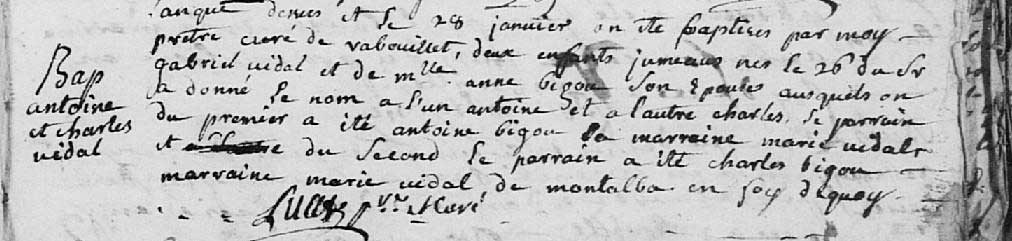 Bap
antoine
et charles
vidal
l'an que dessus et le 28 janvier on ete baptises par moy
pretre curé de rabouillet, deux enfants jumeaux nes le 26 du Sr
gabriel vidal et de mlle anne bigou son Epouse ausquels on
a donné le nom a l'un antoine et a l'autre charles, le parrain
du premier a ité antoine bigou la marraine marie vidal
et du second le parrain a ité charles bigou
marraine marie vidal, de montalba en foy de quoy
curé